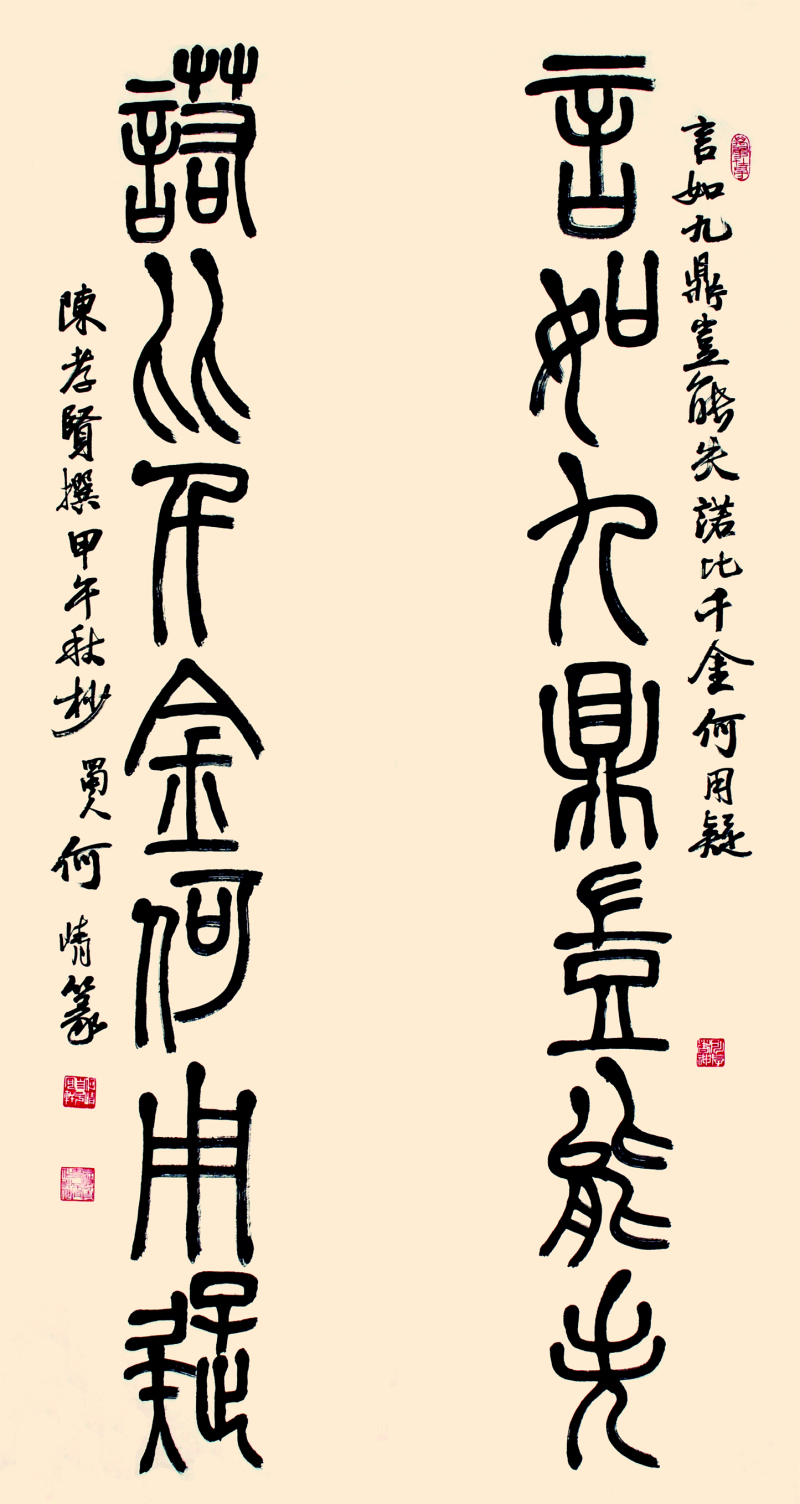 言如九鼎豈能失諾比千金何用疑
言如九鼎豈能失
諾比千金何用疑
陳孝賢撰甲午秋杪蜀人何情篆